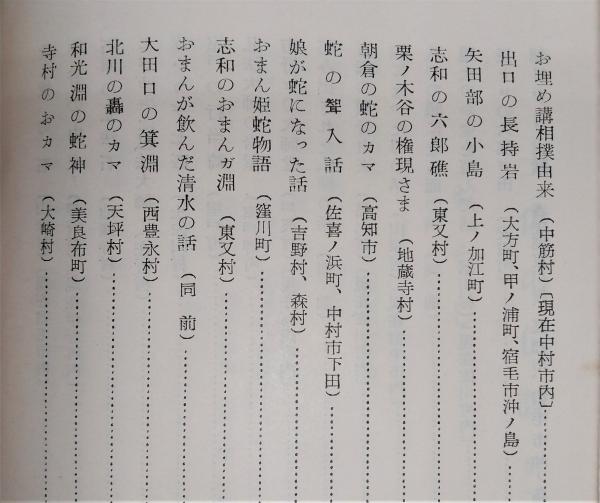 お埋め講相撲由来（中筋村）〔現在中村市内〕…………
出口の長持岩（大方町、甲ノ浦町、宿毛市沖ノ島）……
矢田部の小島（上ノ加江町）…………
志和の六郎礁（東又村）…………
栗ノ木谷の権現さま（地蔵寺村）…………
朝倉の蛇のカマ（高知市）…………
蛇の聟入話（佐喜ノ浜町、中村市下田）…………
娘が蛇になった話（吉野村、森村）…………
おまん姫蛇物語（窪川町）…………
志和のおまんガ淵（東又村）…………
おまんが飲んだ清水の話（同前）…………
大田口の箕淵（西豊永村）…………
北川の轟のカマ（天坪村）…………
和光淵の蛇神（美良布町）…………
寺村のおカマ（大崎村）…………